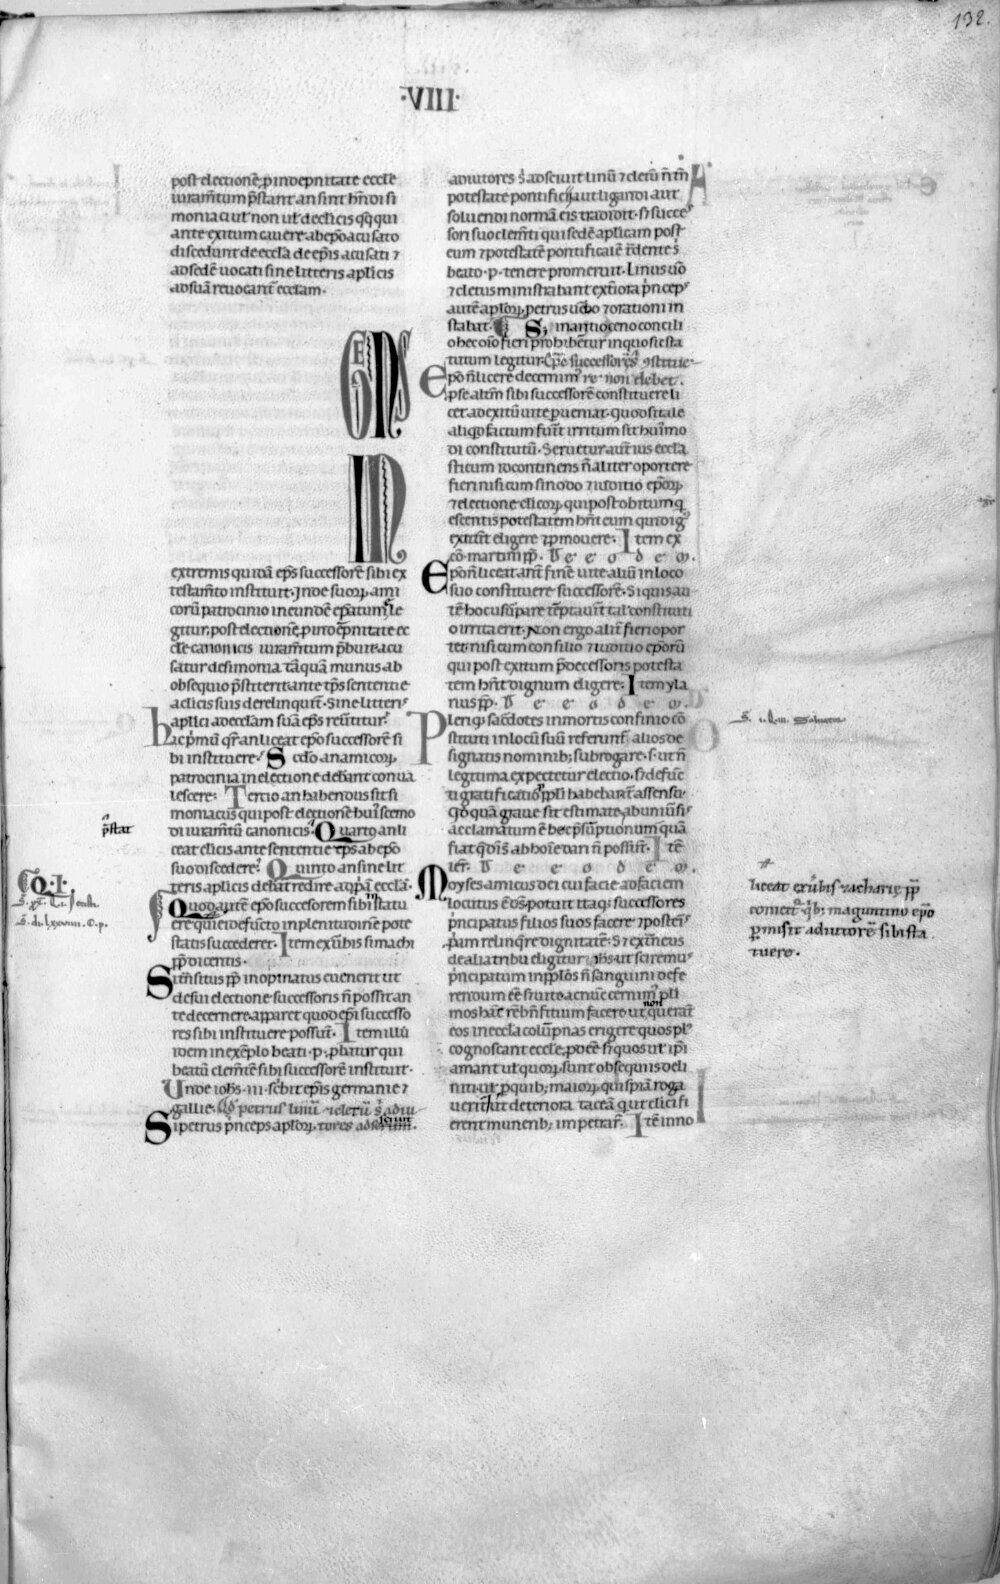 132.
·VIII·
post electionē ꝓ indepnitate eccle
iuramtum p̄stant an sint hn̄di si
moniaci ut non uł de clicis qͥ qui
ante exitum cause ab ep̄o acusato
discedunt de eccła de ep̄is acusati ⁊
ad sedē uocati sine litteris aplicis
ad suā reuocant̄ ecclam·
IN
extremis quidā ep̄s successorē sibi ex
testam̄to instituit· Inde suoꝝ ami
corū patrocinio in eundē ep̄atum le
gitur, post electionē, pro indēpnitate ec
cle canonicis iuram̄tum p̄buit acu
satur de simonia tāquā munus ab
obsequio p̄stiterit· ante tp̄s sententie
a clicis suis derelinquit̄· Sine litteris
aplici ad ecclam suā ep̄s reūtitur·
hic pͥmū qͥrͥ an liceat ep̄o successorē si
bi instituere· Scd̄o an amicoꝝ
patrocinia in electione debant conua
lescere· Tertio an habendus sit si
moniacus qui post electionē huiꝰcemo
di iuram̄tū canonicis p̄stat
Quarto an li
ceat clicis ante sententie tp̄s ab ep̄o
suo discedere· Quinto an sine lit
teris aplicis debat redire ad ꝓpͥā ecclā·
Q·I·
Quod autē ep̄o successorem sibi statu
ere qui eio defuncto in plenitudinē pote
statis succederet· Item ex ūbis simachi
pp̄ dicentis·
Si trāsitus pp̄ inopinatus euenerit ut
de sui electione successoris n̄ possit an
te decernere apparet quod ep̄i successo
res sibi instituere possunt̄· Item illū
idem in exēplo beati ·p· pbatur qui
beatū clemtē sibi successorē instituit·
Unde ioħs ·iii· scͥbit ep̄is germanie ⁊
gallie· Qđ petrus linū ⁊ cletū s̄ adiu
tores adsciuit
Si petrus pͥnceps aploꝝ
adiutores s̄ adsciuit linū ⁊ cletū n̄ tm̄
potestate pontificij aut ligandi aut
soluendi normā eis tradidit· s; succes
sori suo clem̄ti qui sedē aplicam post
eum ⁊ potestatē pontificale t̄dente s̄
beato ·p· tenere promeruit· Linus ūo
⁊ cletus ministrabant exteriora pͥnceps
autē aploꝝ petrus uerbo ⁊ orationi in
stabat· S; in antioceno concili
o hec oīo fieri prohibentur in quo si esta
tutum legitur· Ep̄o successorēs ꝯstitue
re non debet·
Ep̄o n̄ licere decernimꝰ
pse altm̄ sibi successorē constituere li
cet ad exitū uite pueniat· quod si tale
aliqd factum fuit̄ irritum sit huiꝰmo
di constitutū· Seruetur aut̄ ius eccla
sticum id continens n̄ aliter oportere
fieri nisi cum sinodo ⁊ iuditio ep̄oꝝ
⁊ electione clicoꝝ qui post obitum q
escentis potestatem hn̄t eum qui dignꝰ
extit̄it eligere ⁊ pmouere· Item ex
cō· martini pp̄· De eodem.
Ep̄o n̄ liceat ant̄ finē uite aliū in loco
suo constituere successorē· Si quis au
tē hoc usūpare tēptauit̄ tał constituti
o irrita erit· Non ergo alit̄ fieri opor
tet nisi cum consilio ⁊ iuditio ep̄orū
qui post exitum p̄decessoris potesta
tem hn̄t dignum eligere· Item yla
rius pp̄· De eodem.
Pleriqͥ sacdotes in mortis confinio cō
stituti in locū suū referunt̄ alios de
signatis nominib; subrogare s· ut n̄
legitima expectetur electio· s; defuc̄
ti gratificatio ppli habebant̄ assensu·
Qd quā graue sit estimate ab uniūsis
acclamatum ē hec psūptionum quā
fiat qͥ dīs ab hoīe dari n̄ possint· Itē
iero· De eodem.
Moyses amicus dei cui facie ad faciem
locutus ē d̄s· potuit itaqꝫ successores
pͥncipatus filios suos facere ⁊ posteris
ꝓpͥam relinqͥre dignitatē· S; extneus
de alia tribu eligitur ihs· ut sciremus
pͥncipatum in ppłos n̄ sanguini defe
rendum eē s; uite· ac nūc cernimꝰ pli
mos hāc rē bn̄fitium facere· ut non querāt
eos in eccła colupnas erigere quos plꝰ
cognoscant eccle, pdeē s; quos uł ipͥi
amant uł quoꝝ sunt obsequiis deli
niti· uł ꝓ quib; maioꝝ quispiā roga
uerit· ut deteriora taceā qui ut clici fi
erent munerib; impetrar̄· Itē inno
liceat ex ūbis zacharie pp̄
comicit qͥb; maguntino ep̄o
pmisit adiutorē sibi sta
tuere·